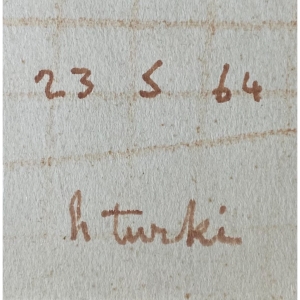 23 5 64
h turki